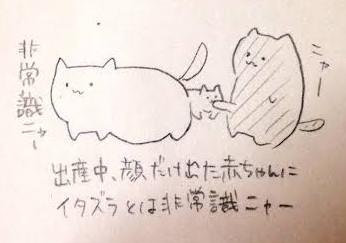 非常識ニャー
ニャー
出産中、顔だけ出た赤ちゃんに
イタズラとは非常識ニャー